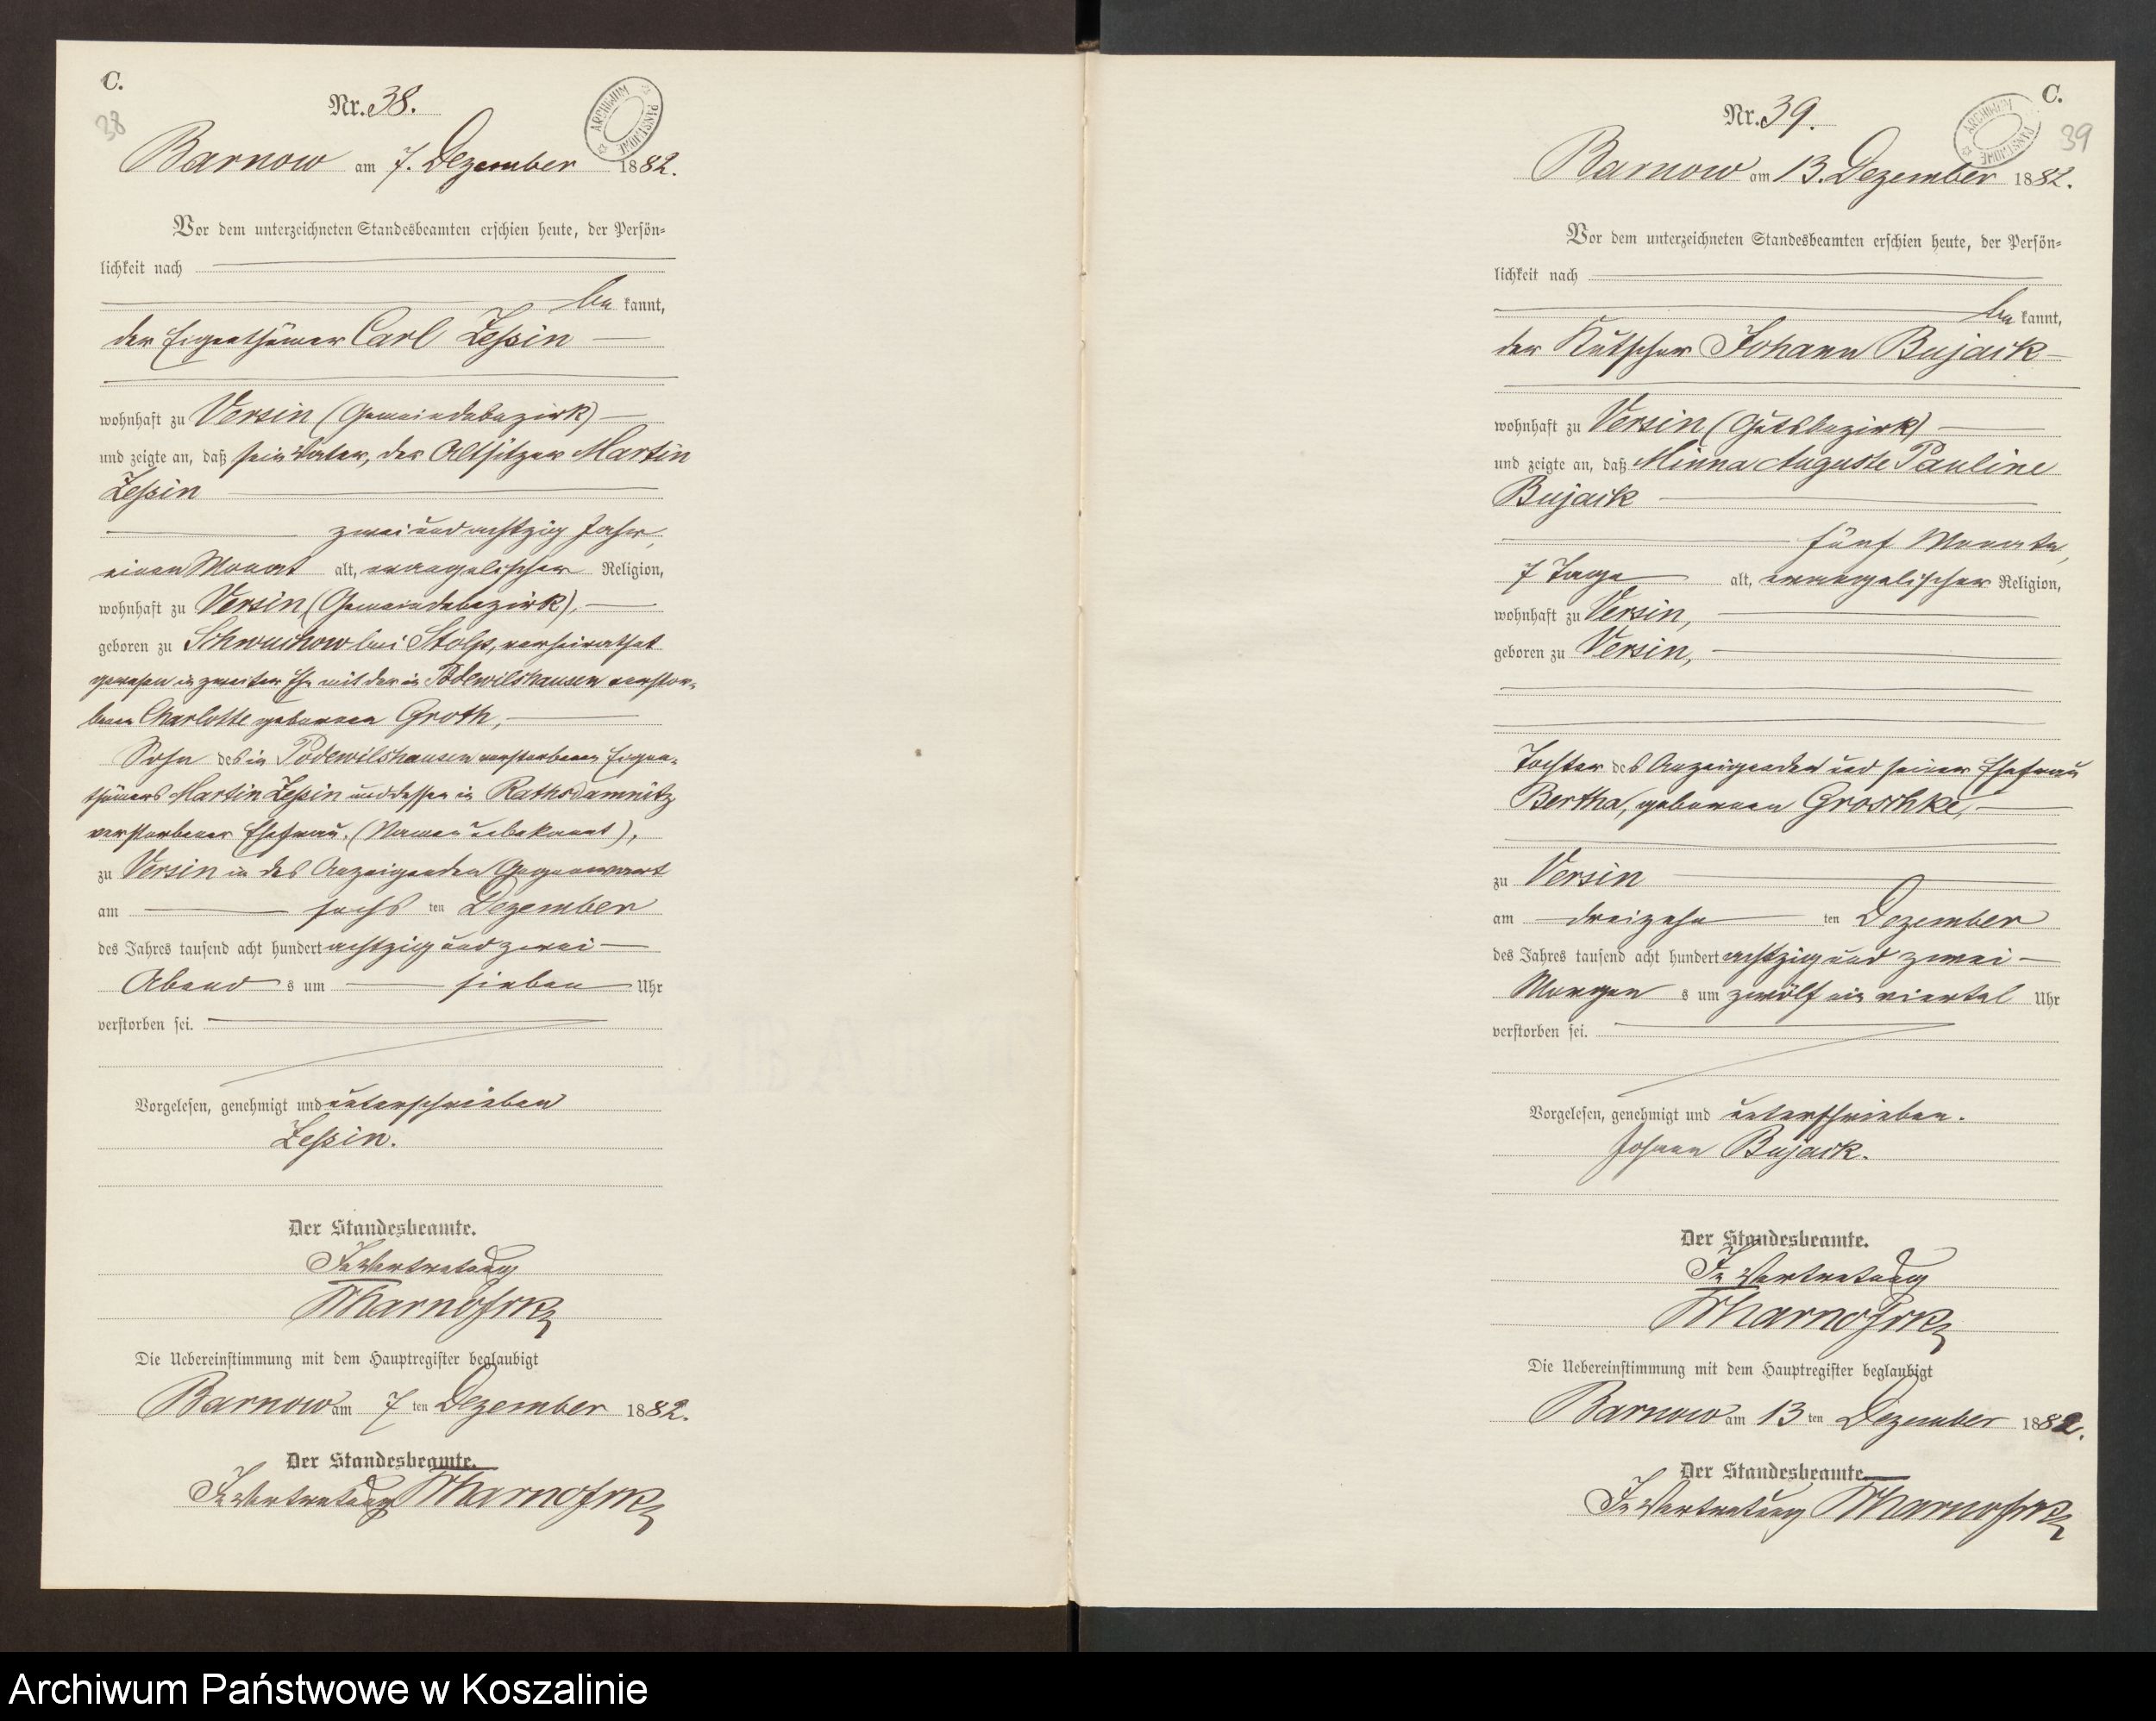 C.
38
Nr. 38.
ARCHIWUM PAŃSTWOWE
Barnow am 7. Dezember 1882.
Vor dem unterzeichneten Standesbeamten erschien heute, der Persön-
lichkeit nach
be kannt,
der Eigenthümer Carl Zessin
wohnhaft zu Versin (Gemeindebezirk)
und zeigte an, daß sein Vater, der Altsitzer Martin
Zessin
zwei und achtzig Jahr,
einen Monat alt, evangelischer Religion,
wohnhaft zu Versin (Gemeindebezirk),
geboren zu Schwuchow bei Stolp, verheirathet
gewesen in zweiter Ehe mit der in Podewilshausen verstor-
benen Charlotte geborenen Groth,
Sohn des in Podewilshausen verstorbenen Eigen-
thümers Martin Zessin und dessen in Rathsdamnitz
verstorbener Ehefrau. (Namen unbekannt),
zu Versin in des Anzeigenden Gegenwart
am sechs ten Dezember
des Jahres tausend acht hundert achtzig und zwei
Abend s um sieben Uhr
verstorben sei.
Vorgelesen, genehmigt und unterschrieben
Zessin.
Der Standesbeamte.
In Vertretung
Die Uebereinstimmung mit dem Hauptregister beglaubigt
Barnow am 7 ten Dezember 1882.
Der Standesbeamte.
In Vertretung
C.
39
Nr. 39.
ARCHIWUM PAŃSTWOWE
Barnow am 13. Dezember 1882.
Vor dem unterzeichneten Standesbeamten erschien heute, der Persön-
lichkeit nach
be kannt,
der Kutscher Johann Bujack
wohnhaft zu Versin (Gutsbezirk)
und zeigte an, daß Minna Auguste Pauline
Bujack
fünf Monate,
7 Tage alt, evangelischer Religion,
wohnhaft zu Versin,
geboren zu Versin,
Tochter des Anzeigenden und seiner Ehefrau
Bertha, geborenen Groschke,
zu Versin
am dreizehn ten Dezember
des Jahres tausend acht hundert achtzig und zwei
Morgen s um zwölf ein viertel Uhr
verstorben sei.
Vorgelesen, genehmigt und unterschrieben.
Johann Bujack.
Der Standesbeamte.
In Vertretung
Die Uebereinstimmung mit dem Hauptregister beglaubigt
Barnow am 13 ten Dezember 1882.
Der Standesbeamte.
In Vertretung
Archiwum Państwowe w Koszalinie